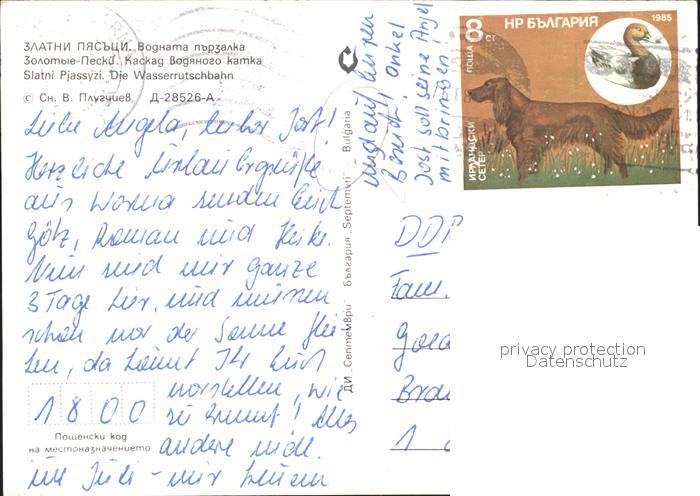 ЗЛАТНИ ПЯСЪЦИ. Водната пързалка
Золотые-Пески. Каскад водяного катка
Slatni Pjassyzi. Die Wasserrutschbahn
© Сн. В. Плугчиев. Д-28526-А
Liebe Angela, lieber Jost!
Herzliche Urlaubsgrüße
aus Warna senden Euch
Götz, Roman und Heike.
Nun sind wir ganze
3 Tage hier und müssen
schon vor der Sonne flie-
hen, da könnt Ihr Euch
vorstellen, wie
es brennt! Alles
andere mdl.
im Juli - wir freuen
1800
Пощенски код
на местоназначението
ДИ „Септември" България „Septemvri" Bulgaria
uns auf einen
Besuch! Onkel
Jost soll seine Angel
mitbringen!
НР БЪЛГАРИЯ
1985
ПОЩА 8 СТ
ИРЛАНДСКИ
СЕТЕР
DDR
Fam.
Bra
1
privacy protection
Datenschutz